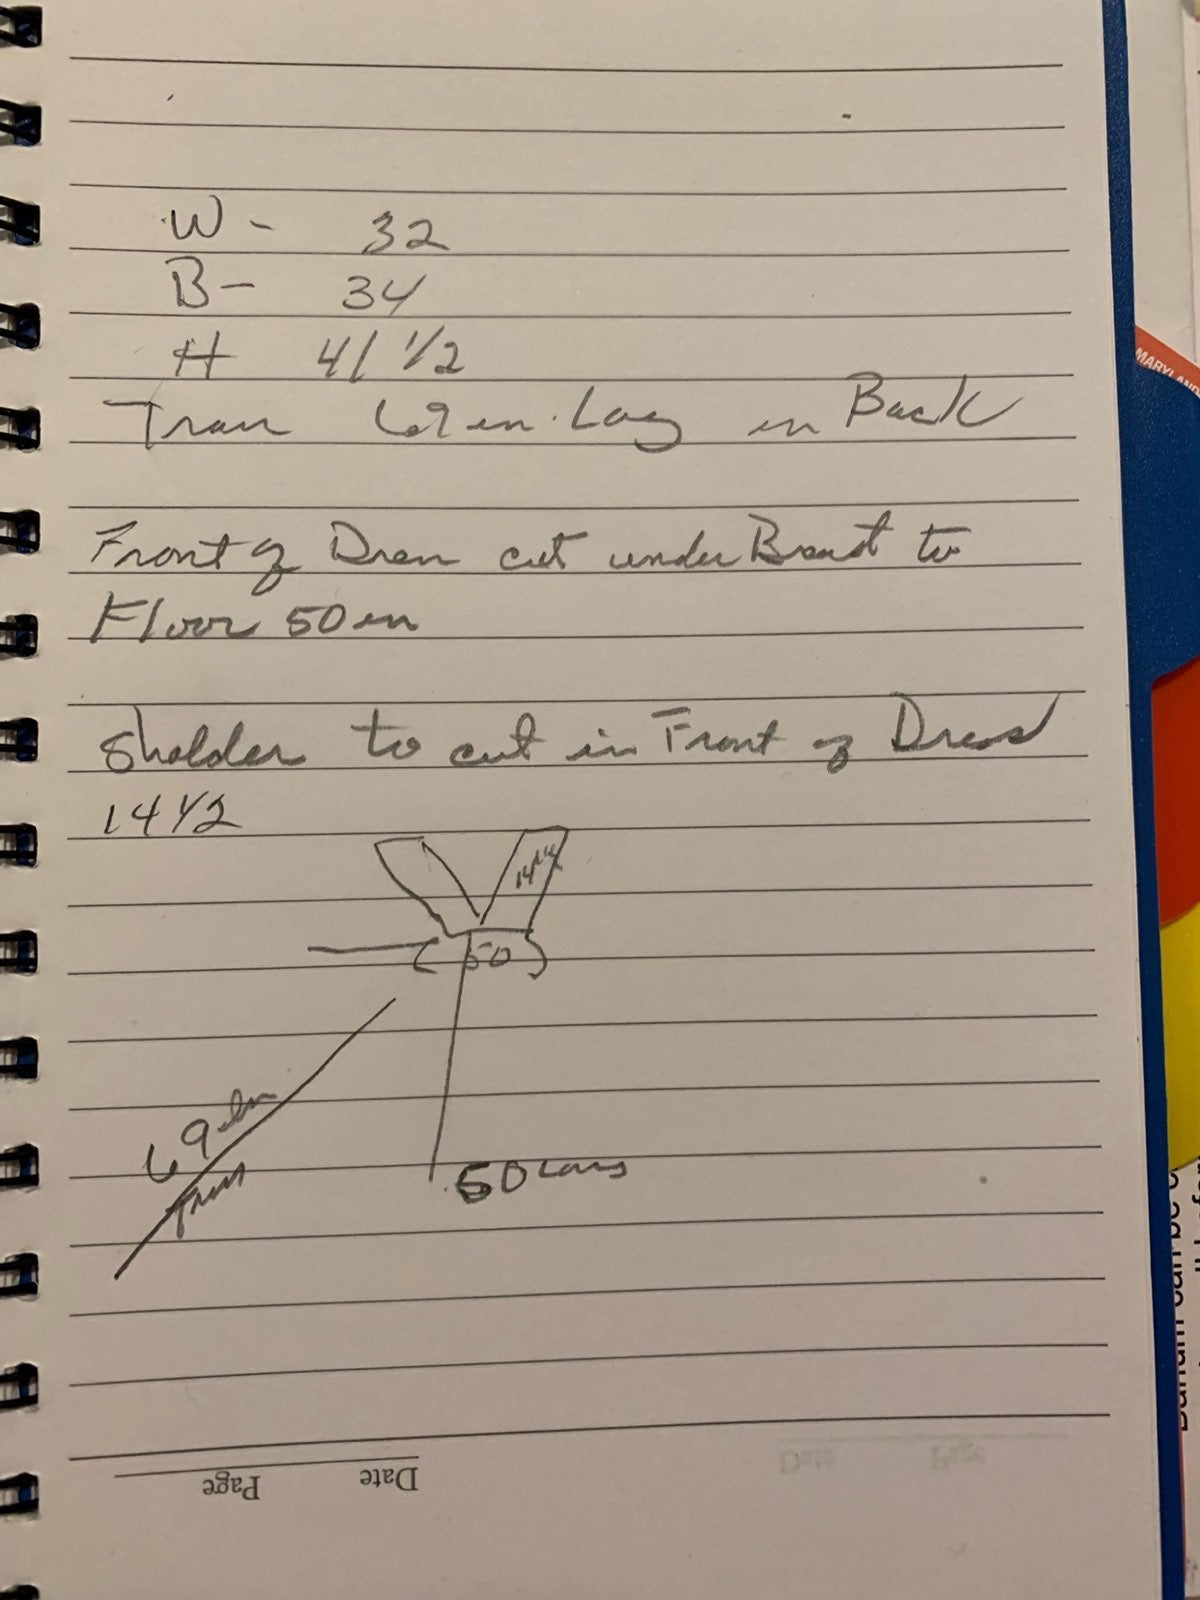 W - 32
B - 34
H 41 1/2
Tran 69 in. Long in Back
Front of Dress cut under Breast to
Floor 50 in
Sholder to cut in Front of Dress
14 1/2
14 1/2
50
69 in
Tran
50 Long
Page Date
Date Page
MARYLAND